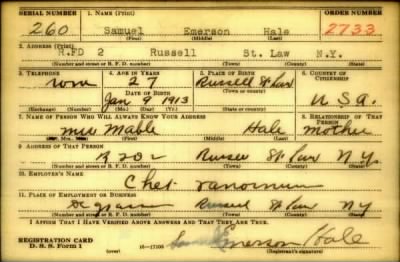 SERIAL NUMBER 1. NAME (Print) ORDER NUMBER
260 Samuel Emerson Hale 2733
(First) (Middle) (Last)
2. ADDRESS (Print)
R.FD 2 Russell St. Law N.Y.
(Number and street or R. F. D. number) (Town) (County) (State)
3. TELEPHONE 4. AGE IN YEARS 5. PLACE OF BIRTH 6. COUNTRY OF CITIZENSHIP
none 27 Russell St Law
DATE OF BIRTH (Town or county)
Jan 9 1913 U.S.A.
(Exchange) (Number) (Mo.) (Day) (Yr.) (State or country)
7. NAME OF PERSON WHO WILL ALWAYS KNOW YOUR ADDRESS 8. RELATIONSHIP OF THAT PERSON
Mable Hale mother
(Mr., Mrs., Miss) (First) (Middle) (Last)
9. ADDRESS OF THAT PERSON
Russell St Law N.Y.
(Number and street or R. F. D. number) (Town) (County) (State)
10. EMPLOYER'S NAME
Chet
11. PLACE OF EMPLOYMENT OR BUSINESS
Russell St Law N.Y.
(Number and street or R. F. D. number) (Town) (County) (State)
I AFFIRM THAT I HAVE VERIFIED ABOVE ANSWERS AND THAT THEY ARE TRUE.
REGISTRATION CARD
D. S. S. Form 1 16—17105 Samuel Emerson Hale
(Registrant's signature)